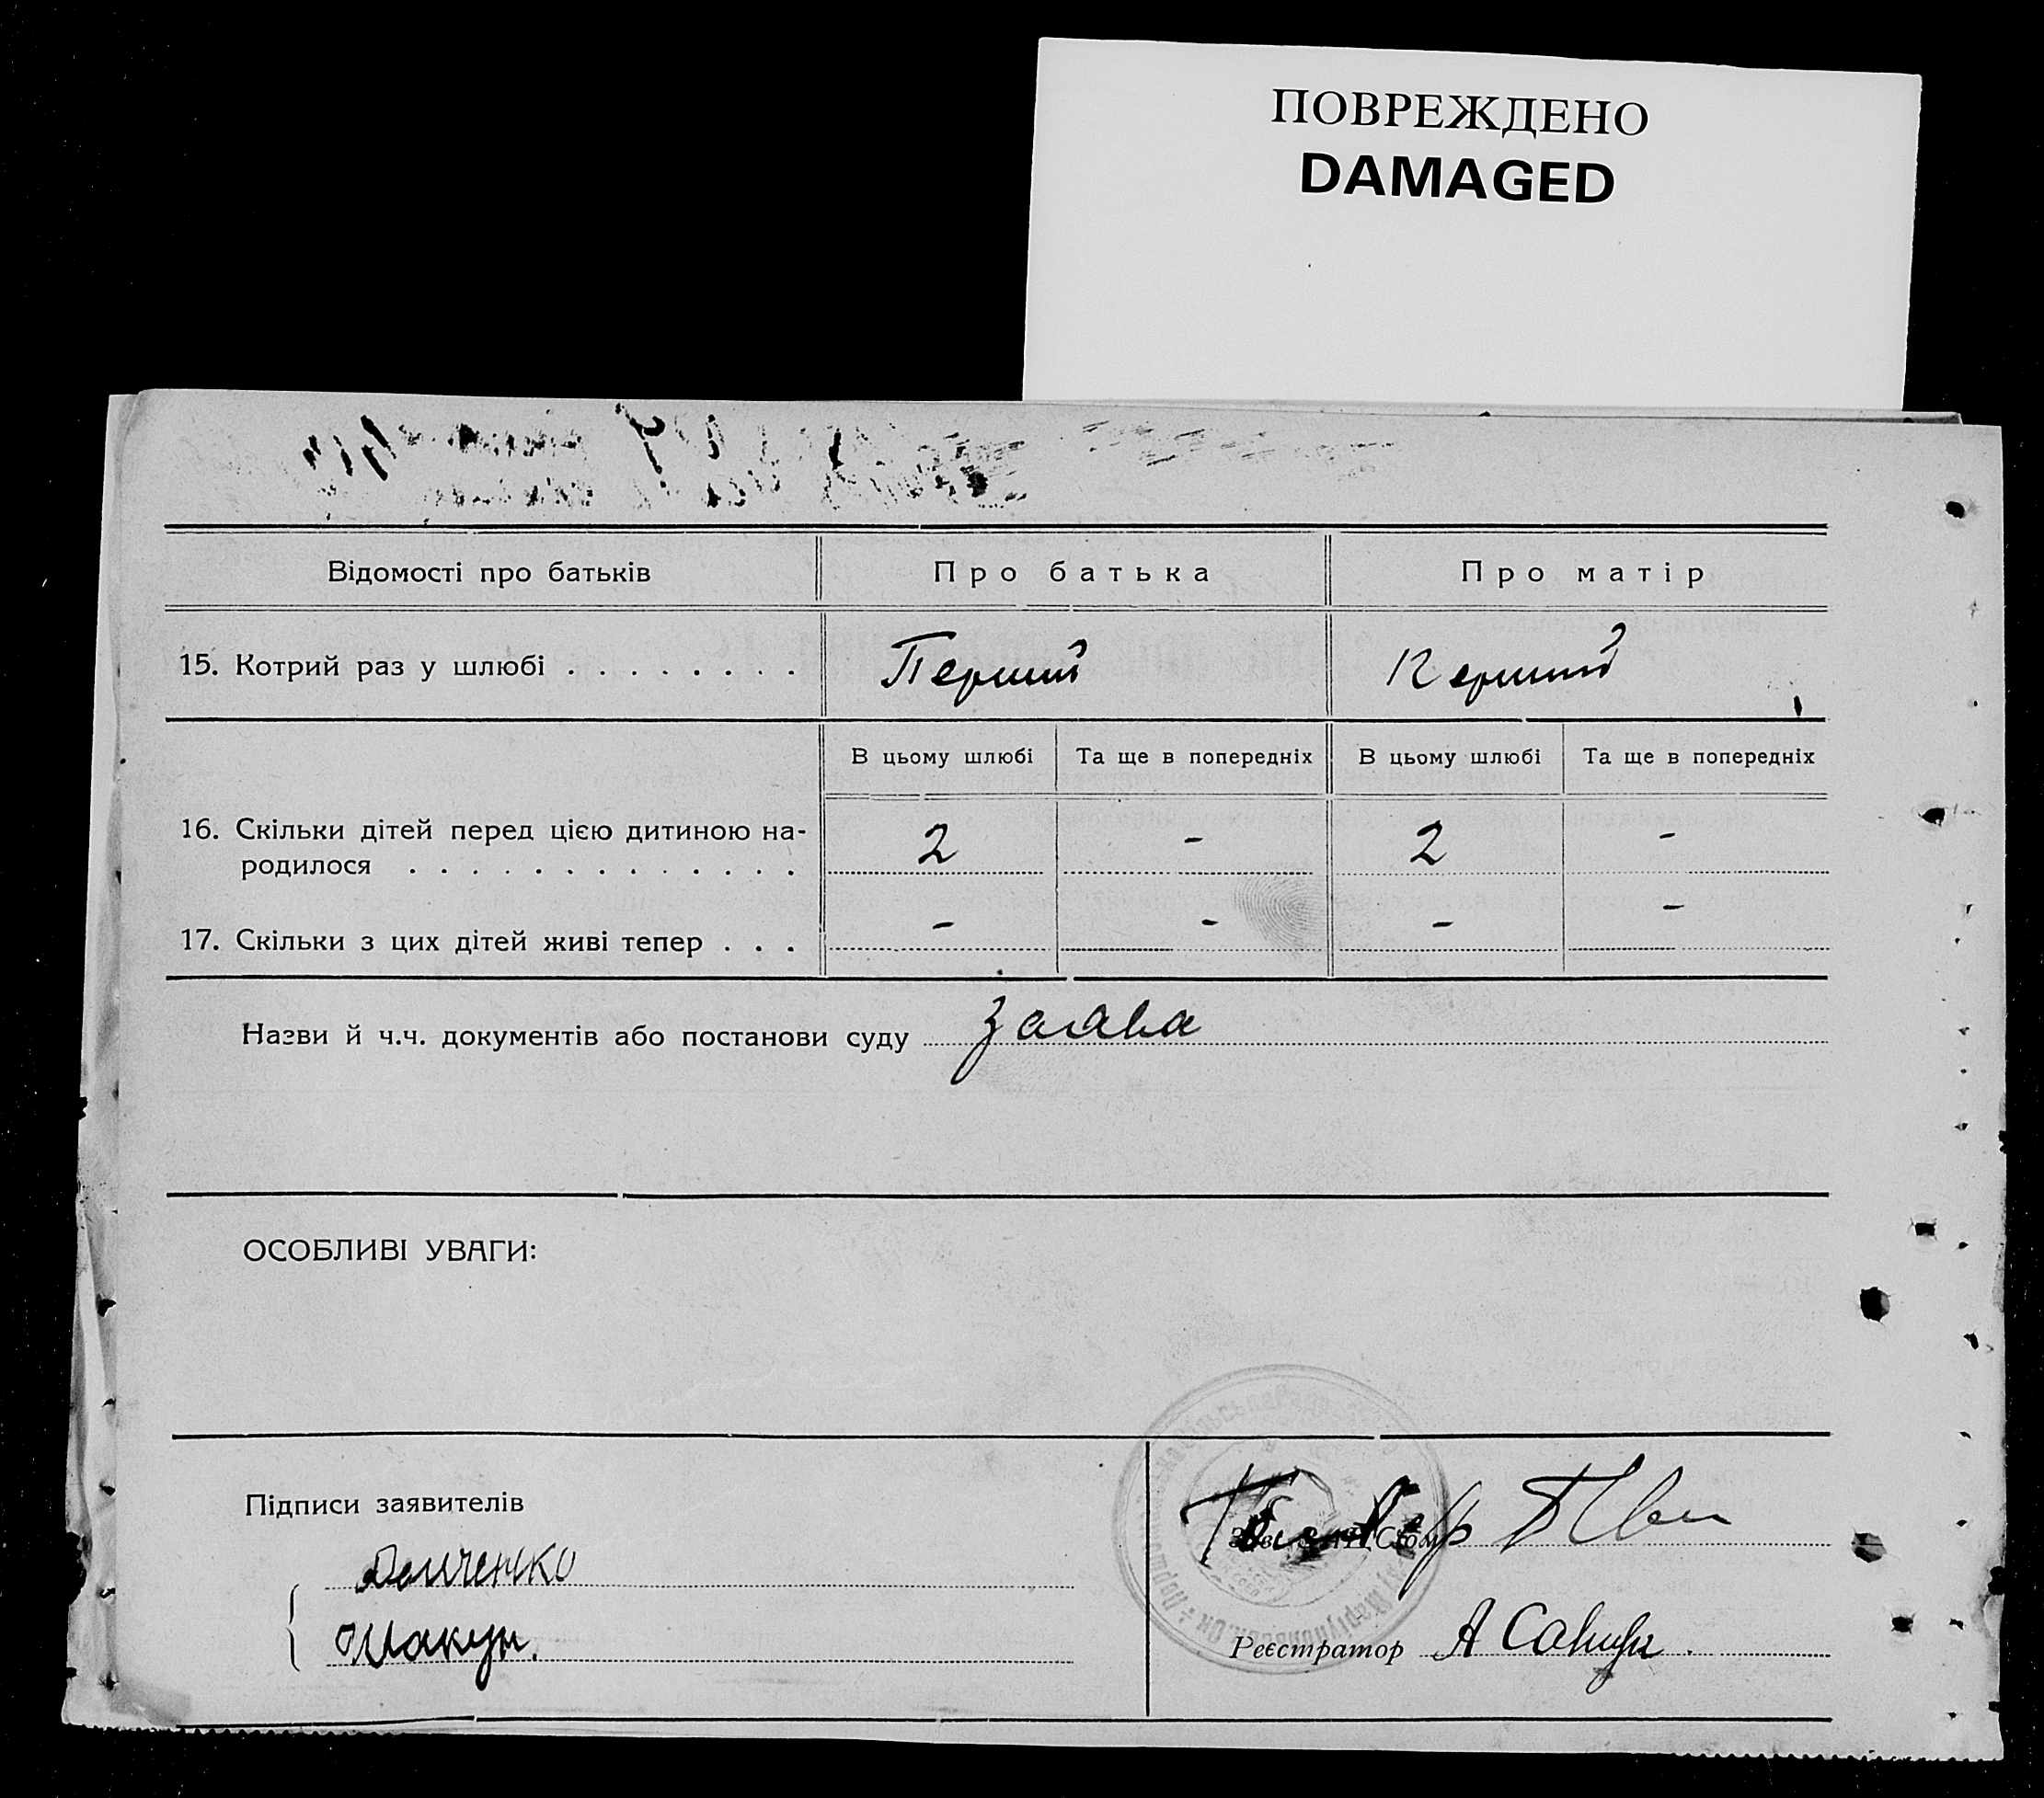 ПОВРЕЖДЕНО
DAMAGED
Відомості про батьків
Про батька
Про матір
15. Котрий раз у шлюбі . . . . . . . .
Перший
Перший
В цьому шлюбі
Та ще в попередніх
В цьому шлюбі
Та ще в попередніх
16. Скільки дітей перед цією дитиною на-
родилося . . . . . . . . . . . . .
2
-
2
-
17. Скільки з цих дітей живі тепер . . .
-
-
-
-
Назви й ч.ч. документів або постанови суду
Заява
ОСОБЛИВІ УВАГИ:
Підписи заявителів
Реєстратор А